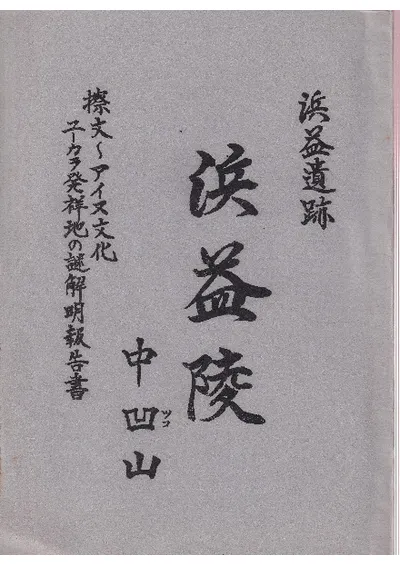 浜益遺跡
浜益陵
中凹山
ツコ
擦文〜アイヌ文化
ユーカラ発祥地の謎解明報告書